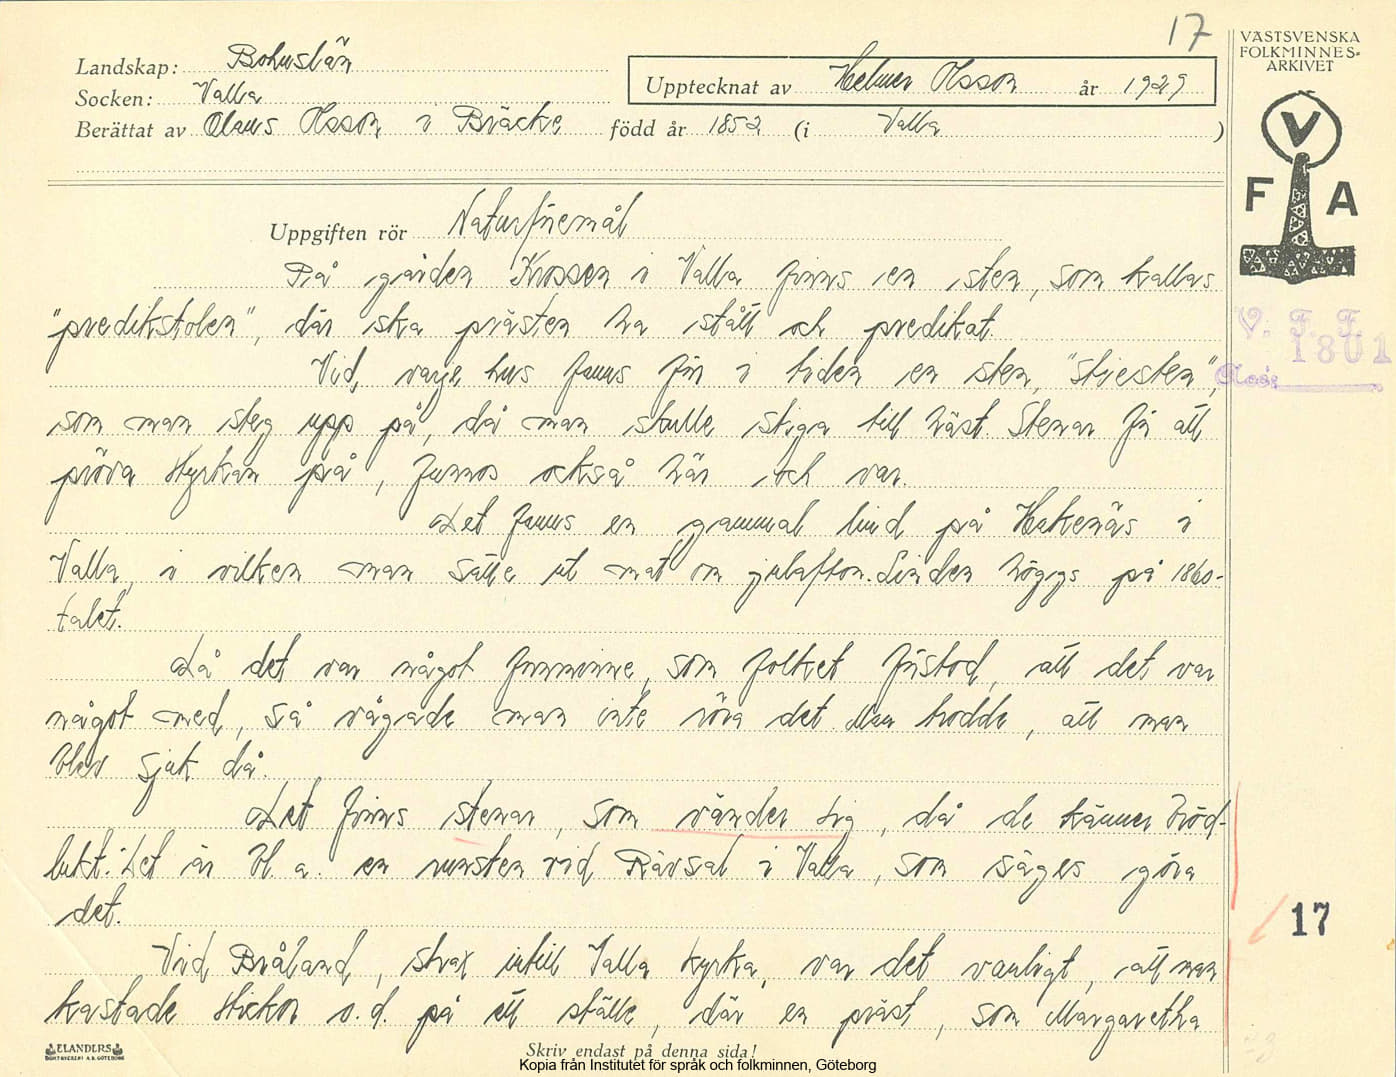 17
VÄSTSVENSKA
FOLKMINNES-
ARKIVET
Landskap: Bohuslän
Socken: Valla
Upptecknat av Helmer Olsson år 1929
Berättat av Olaus Olsson i Bräcke född år 1852 (i Valla )
V
F A
Uppgiften rör Naturföremål
På gården Krossen i Valla finns en sten, som kallas
"predikstolen", där ska prästen ha stått och predikat.
Vid varje hus fanns förr i tiden en sten, "stiesten",
som man steg upp på, då man skulle stiga till häst. Stenar för att
pröva styrkan på, funnos också här och var.
Det fanns en gammal lind på Hakenäs i
Valla, i vilken man satte ut mat om julafton. Linden höggs på 1860-
talet.
Då det var något fornminne, som folket förstod, att det var
något med, så vågade man inte röra det. Man trodde, att man
blev sjuk då.
Det finns stenar, som vänder sig, då de känner bröd-
lukt. Det är bl. a. en runsten vid Rävsal i Valla, som säges göra
det.
Vid Bråland, strax intill Valla kyrka, var det vanligt, att man
kastade stickor o.d. på ett ställe, där en präst, som Margaretha
V. F. F.
1801
17
ELANDERS
BOKTRYCKERI A.B. GÖTEBORG
Skriv endast på denna sida!
Kopia från Institutet för språk och folkminnen, Göteborg